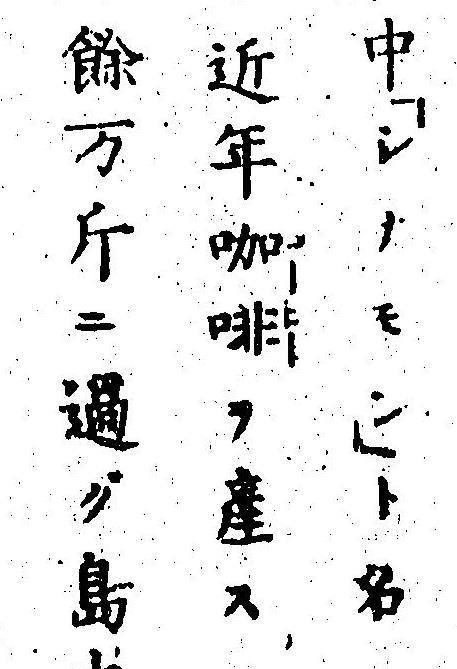 中「シノモン」ト名
近年咖啡ヲ產ス
餘万斤ニ過グ島